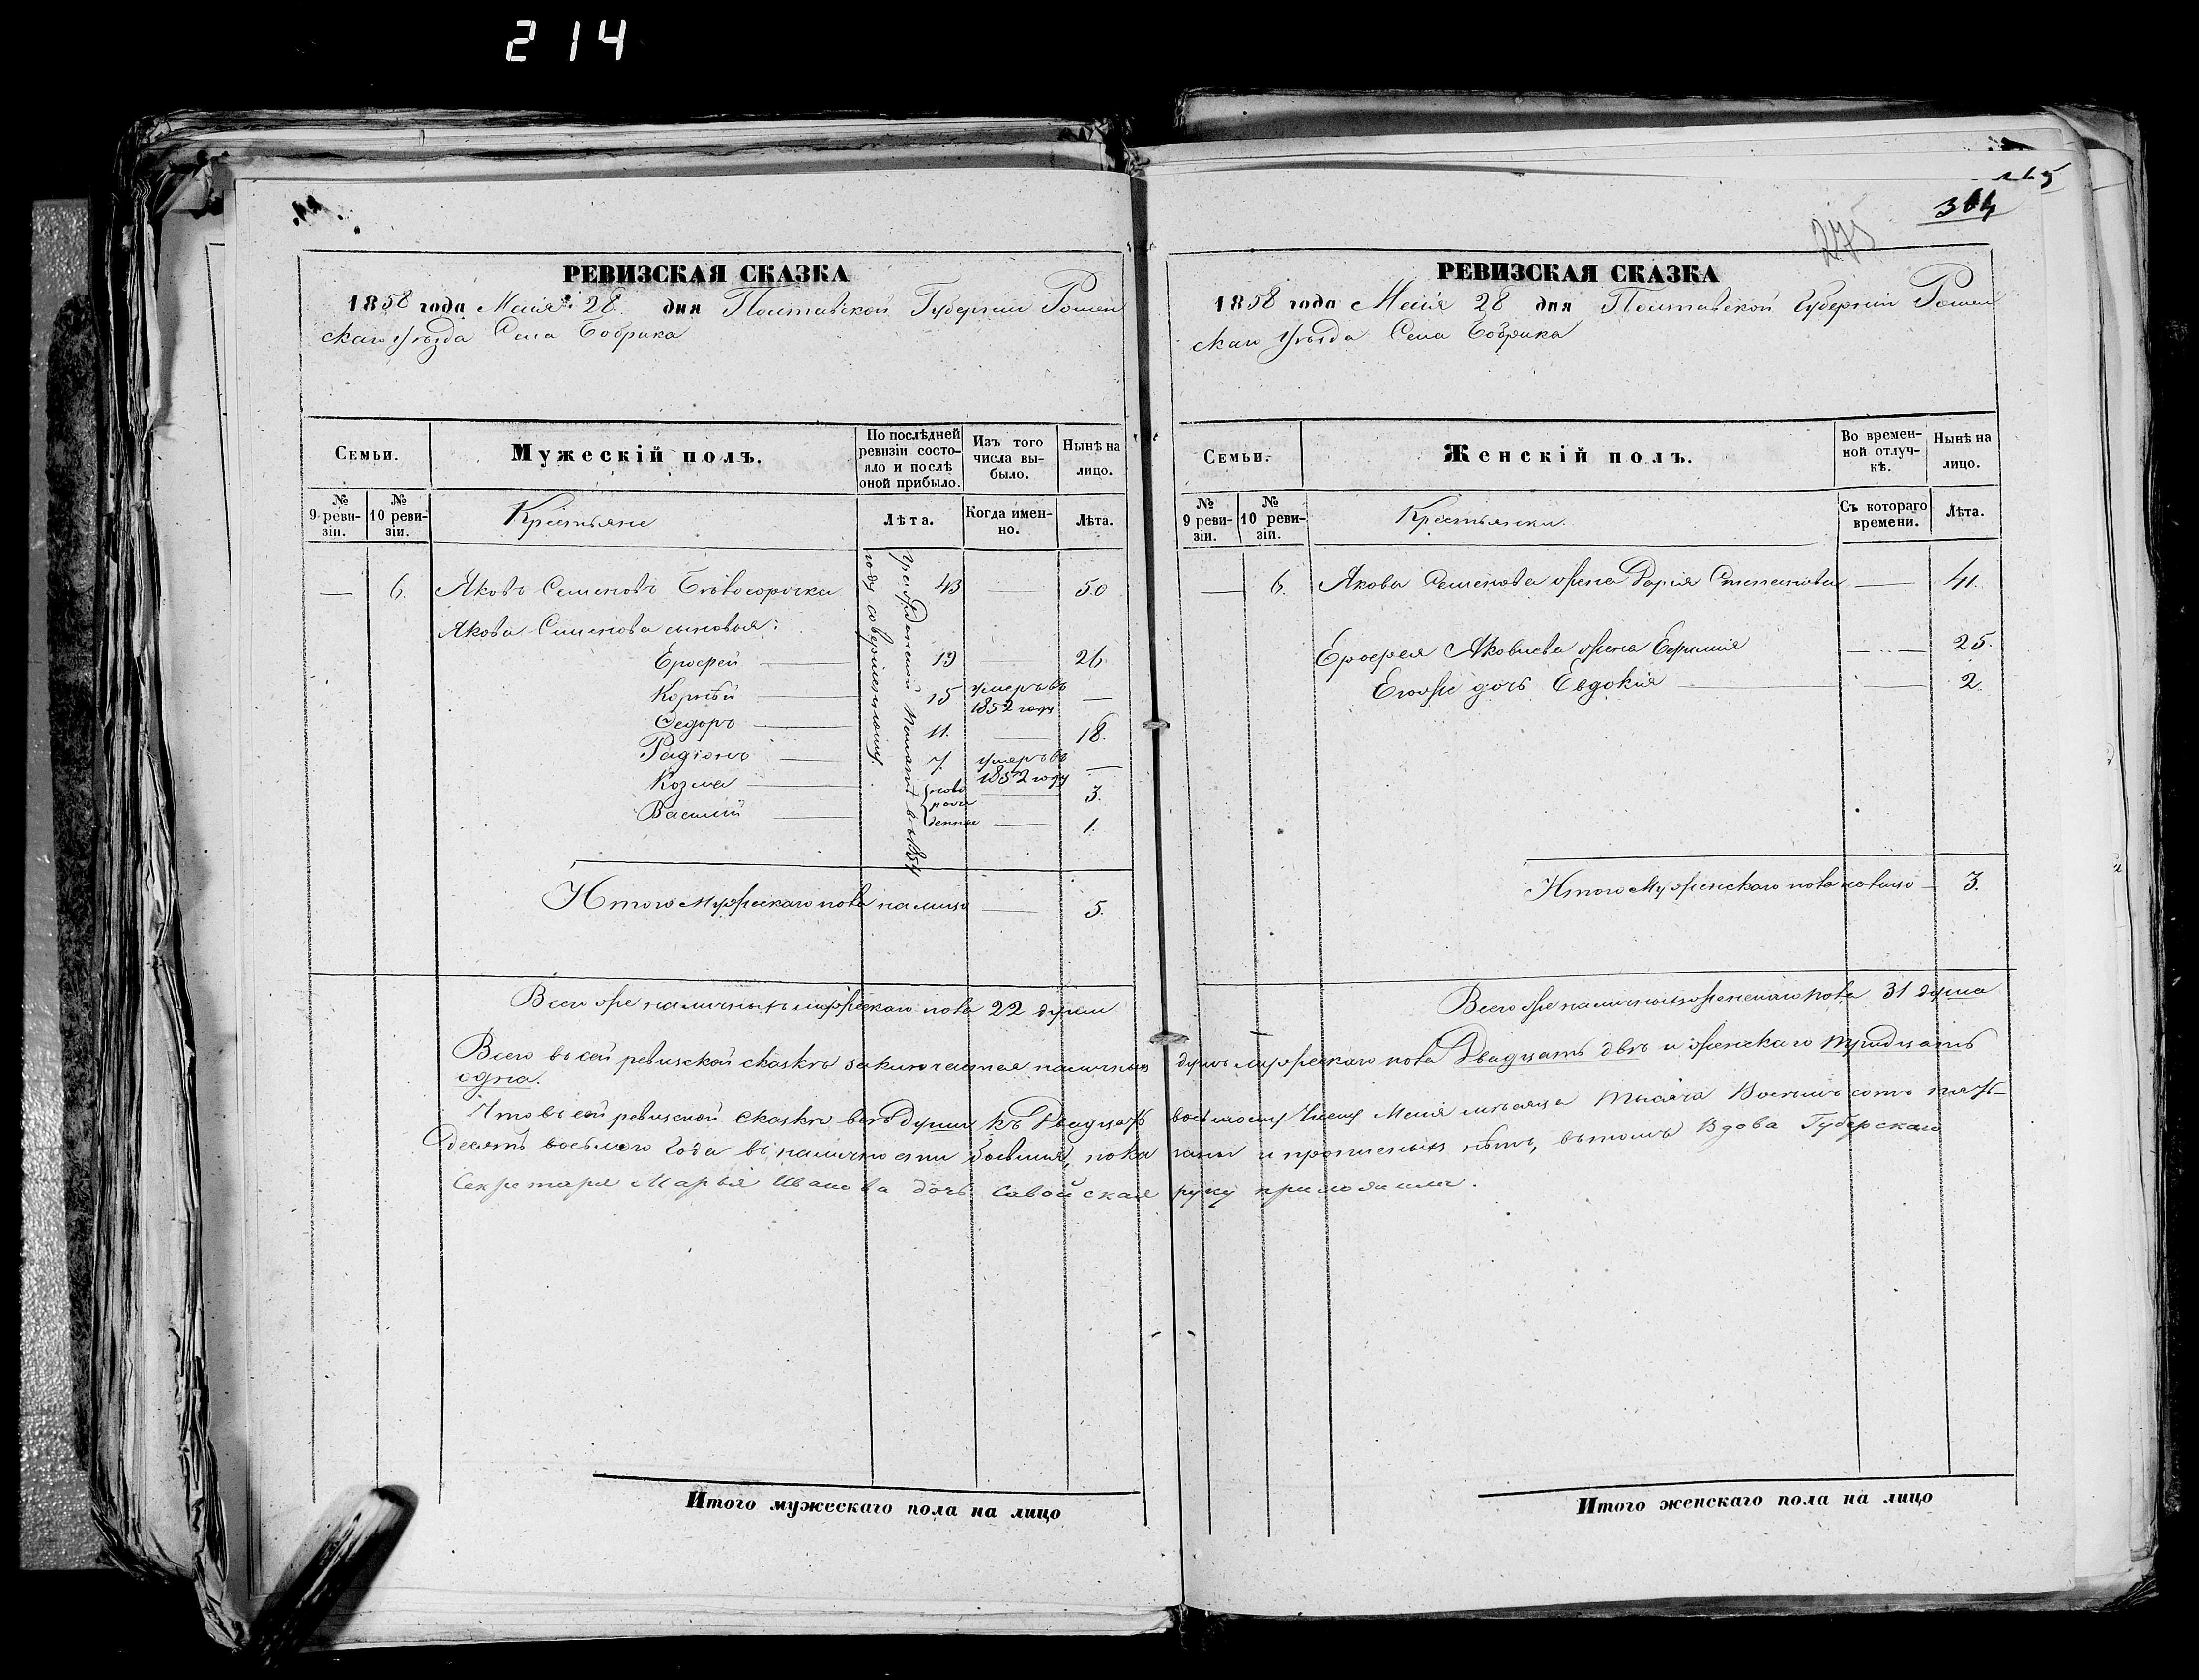 214
РЕВИЗСКАЯ СКАЗКА
1858 года Маія 28 дня Полтавской Губерніи Ромен
скаго уѣзда Села Бобрика
Семьи.
Мужескій полъ.
По послѣдней ревизіи состояло и послѣ оной прибыло.
Изъ того числа выбыло.
Нынѣ на лицо.
№ 9 ревизіи.
№ 10 ревизіи.
Крестьяне
Лѣта.
Когда именно.
Лѣта.
— 6. Яковъ Семеновъ Бѣлосорочка 43 — 50
Якова Семенова сыновья:
Ерофей — 19 — 26
Корнѣй — 15 умеръ въ 1852 году —
Федоръ — 11. — 18.
Радіонъ — 7 умеръ въ 1852 году —
Козма — 3.
Василій — 1.
ново
рож
денные
Гражданской Палатѣ въ 1854
году совершенному.
Итого Мужескаго пола налицо — 5.
Всего же наличныхъ мужескаго пола 22 души
365
364
275
РЕВИЗСКАЯ СКАЗКА
1858 года Маія 28 дня Полтавской Губерніи Ромен
скаго Уѣзда Села Бобрика
Семьи.
Женскій полъ.
Во временной отлучкѣ.
Нынѣ на лицо.
№ 9 ревизіи.
№ 10 ревизіи.
Крестьянки.
Съ котораго времени.
Лѣта.
— 6. Якова Семенова жена Дарія Степанова — 41.
Ерофея Яковлева жена Евфимія — 25.
Егоже дочь Евдокія — 2.
Итого Муженскаго пола налицо — 3.
Всего же наличныхъ женскаго пола 31 душа
Всего въ сей ревизской сказкѣ заключается наличныхъ душъ мужескаго пола Двадцать двѣ и женскаго тридцать
одна.
Что въ сей ревизской сказкѣ всѣ души къ Двадцать восьмому Числу Маія мѣсяца тысяча Восемь сотъ пять-
десятъ восьмого Года въ наличности бывшія, показаны и прописныхъ нѣтъ, въ томъ Вдова Губерскаго
Секретаря Марья Иванова дочь Савойская руку приложила.
Итого мужескаго пола на лицо
Итого женскаго пола на лицо